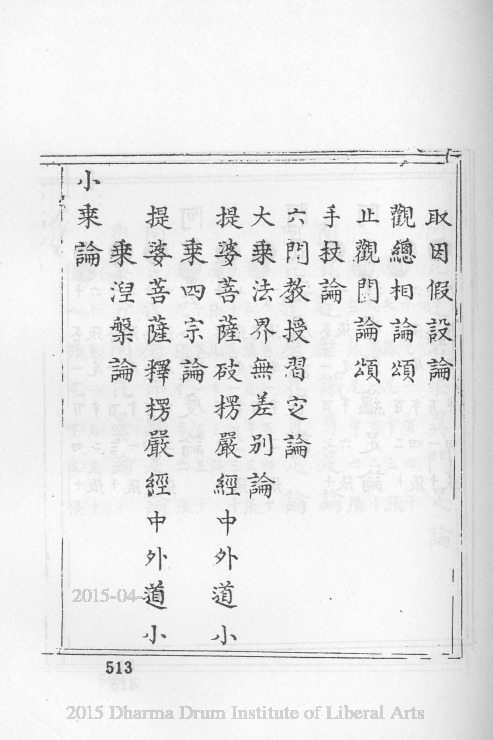 取因假設論
觀總相論頌
止觀門論頌
手杖論
六門教授習定論
大乘法界無差別論
提婆菩薩破楞嚴經中外道小
乘四宗論
提婆菩薩釋楞嚴經中外道小
乘涅槃論
小乘論
513
2015-04-
2015 Dharma Drum Institute of Liberal Arts